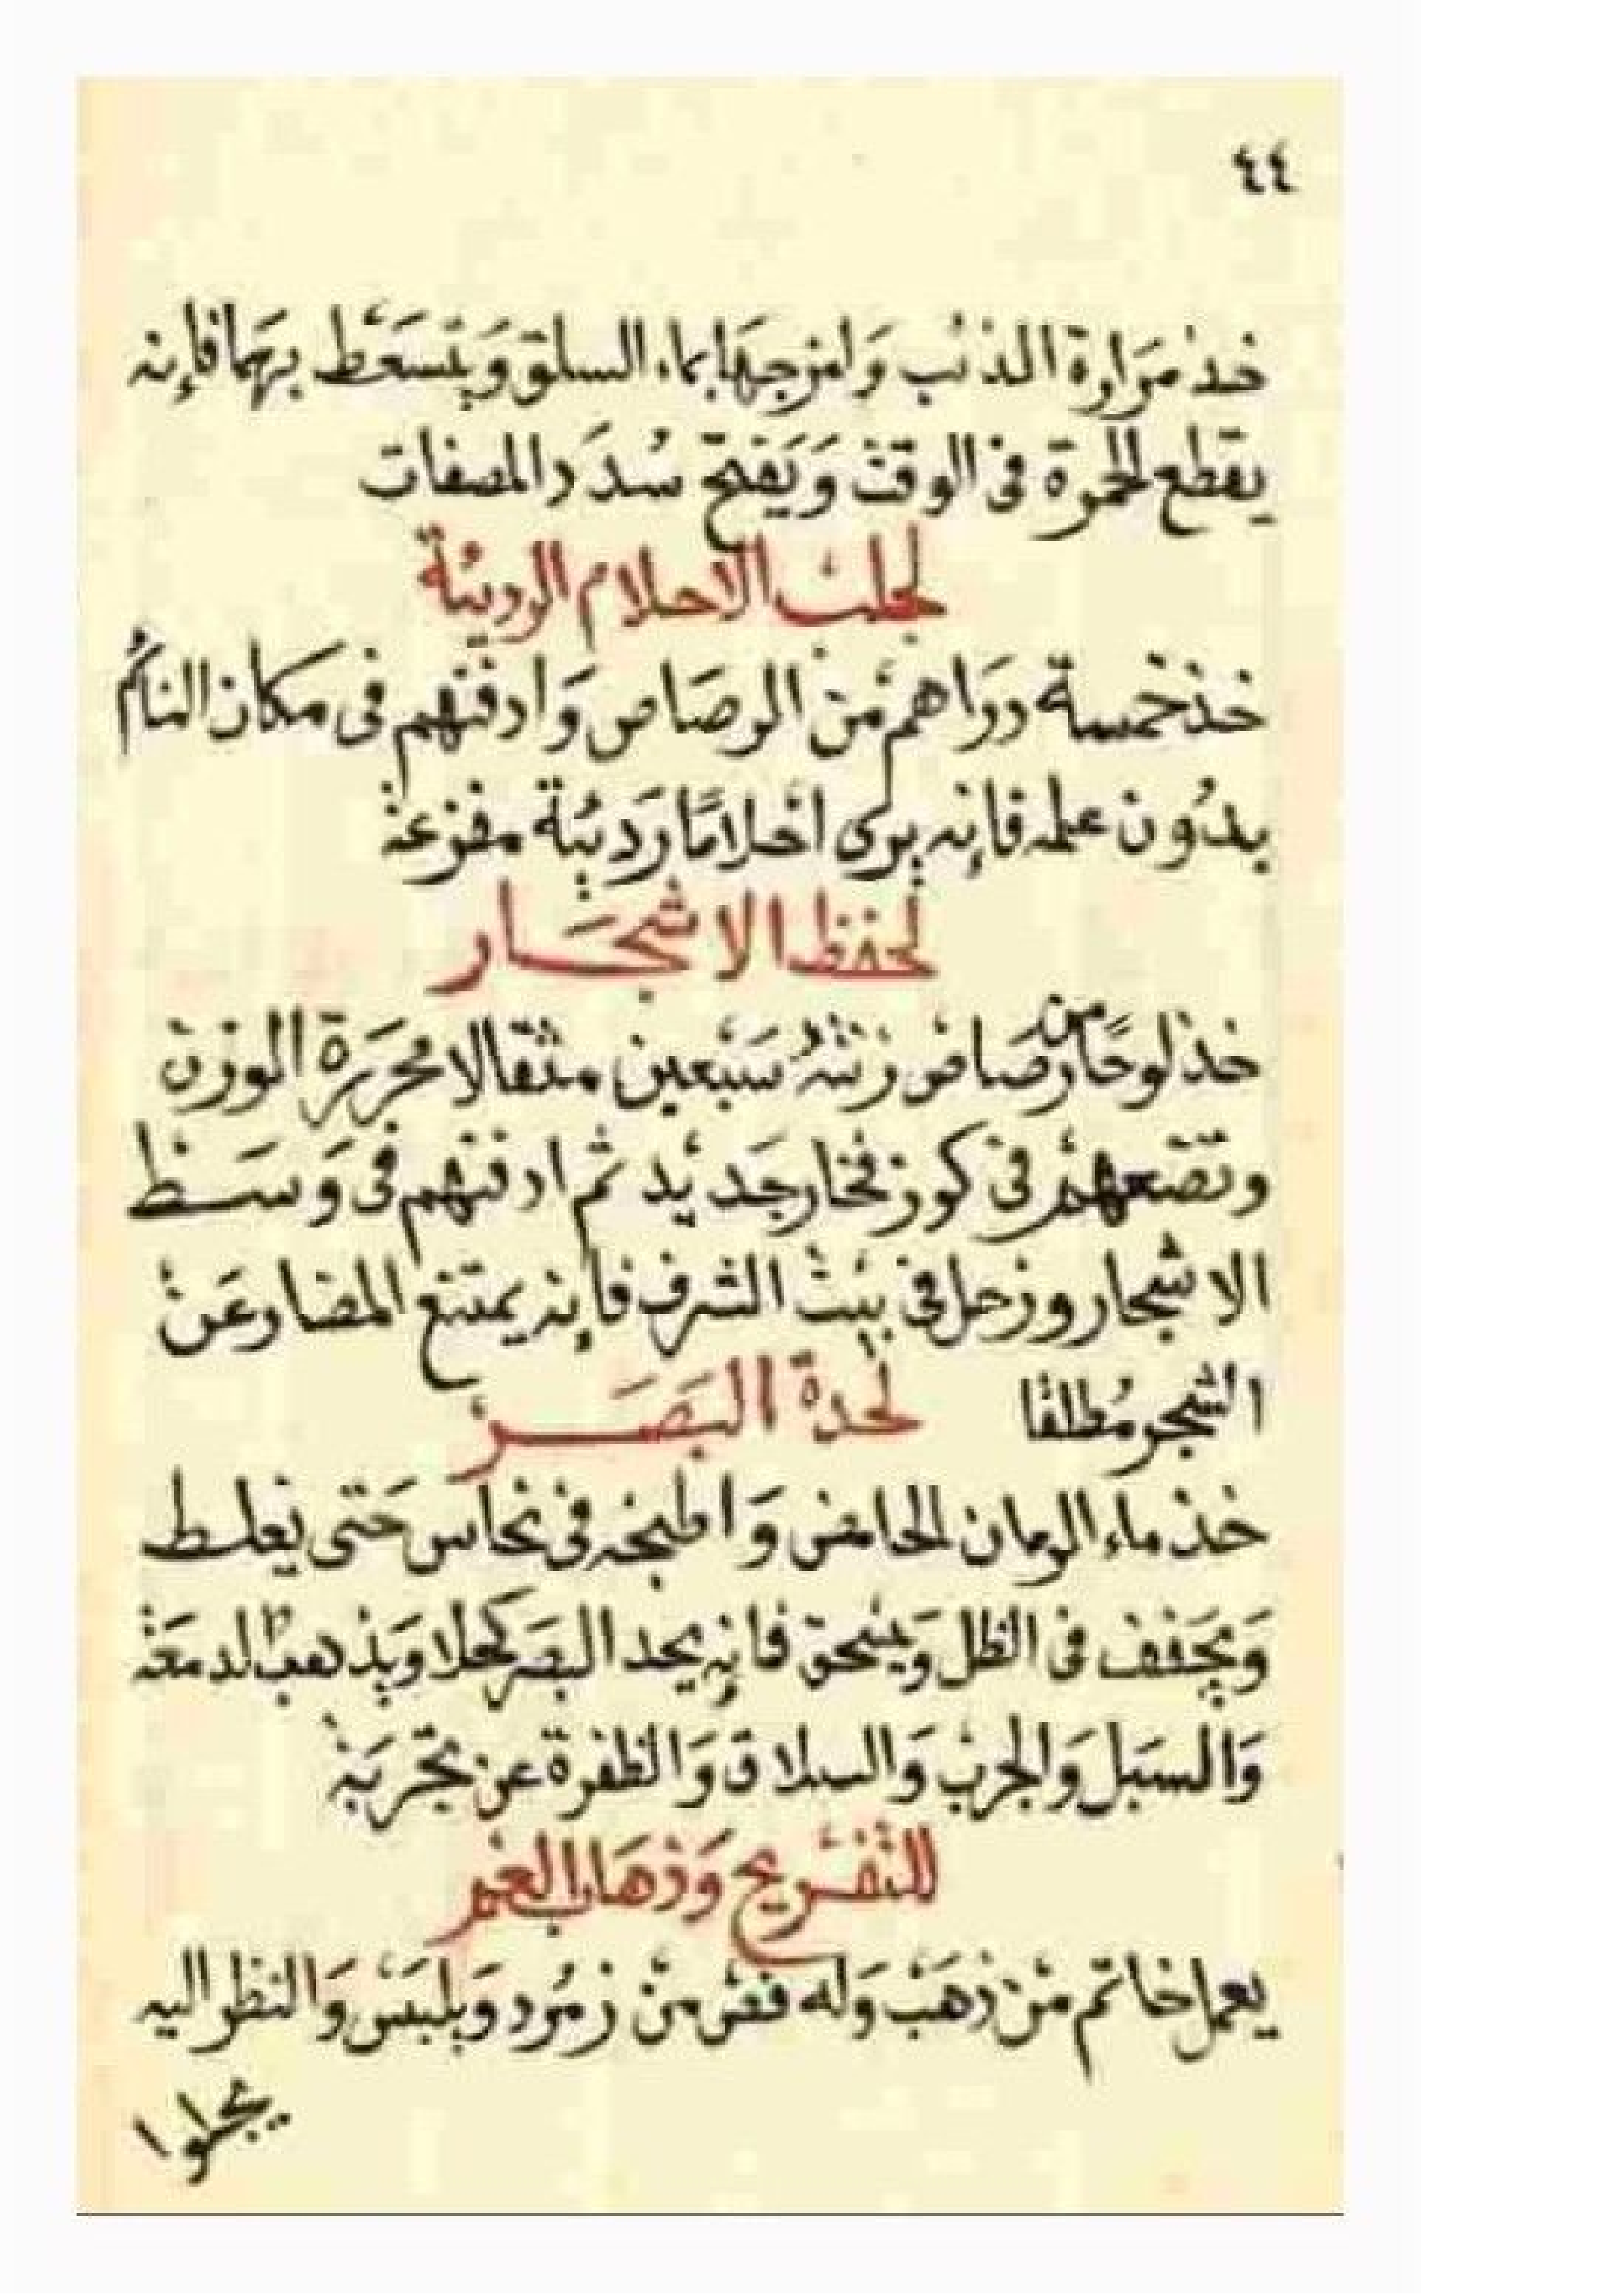 ٤٤
خذ مَرَارة الذئب وَامزجهَا بماء السلق وَيتسَعَط بهَما فإنه
يقطع الحمرة فى الوقت وَيَفتح سُدَد المصفات
لجلب الاحلام الرديئة
خذ خمسة دَرَاهم من الرصَاص وَادفنهم فى مكان النائم
بدُون علمه فإنه يرى أحلامًا رَديئة مفزعة
لحفظ الاشجَار
خذ لوحًا من رصَاص زنتهُ سَبعين مثقالا محرَرَة الوزن
وتضعهم فى كوز فخار جَديد ثم ادفنهم فى وَسَط
الاشجار وزحل فى بيت الشرف فإنه يمتنع المضار عَن
الشجر مُطلقا
لحدة البَصَر
خذ ماء الرمان الحامض وَاطبخه فى نحاس حَتى يغلظ
وَيجَفف فى الظل وَيسحق فانه يحد البصَر كحلا وَيذهب الدمعَة
وَالسبَل وَالجرب وَالسلاق وَالظفرة عن تجربَة
للتفريح وَذهَاب الغم
يعمل خاتم من ذهَب وَله فص من زمُرد وَيلبَس وَالنظر اليه
يجلوا